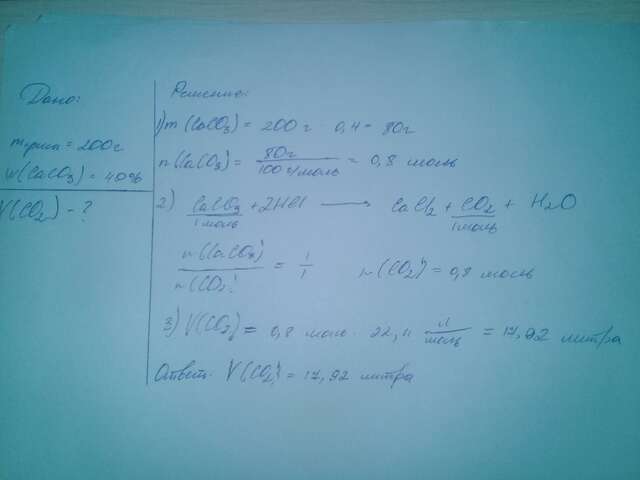 Дано:
m руши = 200г
w(CaCO3) = 40%
V(CO2) - ?
Решение:
1) m (CaCO3) = 200 г · 0,4 = 80г
n (CaCO3) = 80г / 100 г/моль = 0,8 моль
2) CaCO3 + 2HCl ⟶ CaCl2 + CO2 + H2O
1 моль 1 моль
n(CaCO3) / n(CO2) = 1 / 1 n(CO2) = 0,8 моль
3) V(CO2) = 0,8 моль · 22,4 л/моль = 17,92 литра
Ответ: V(CO2) = 17,92 литра